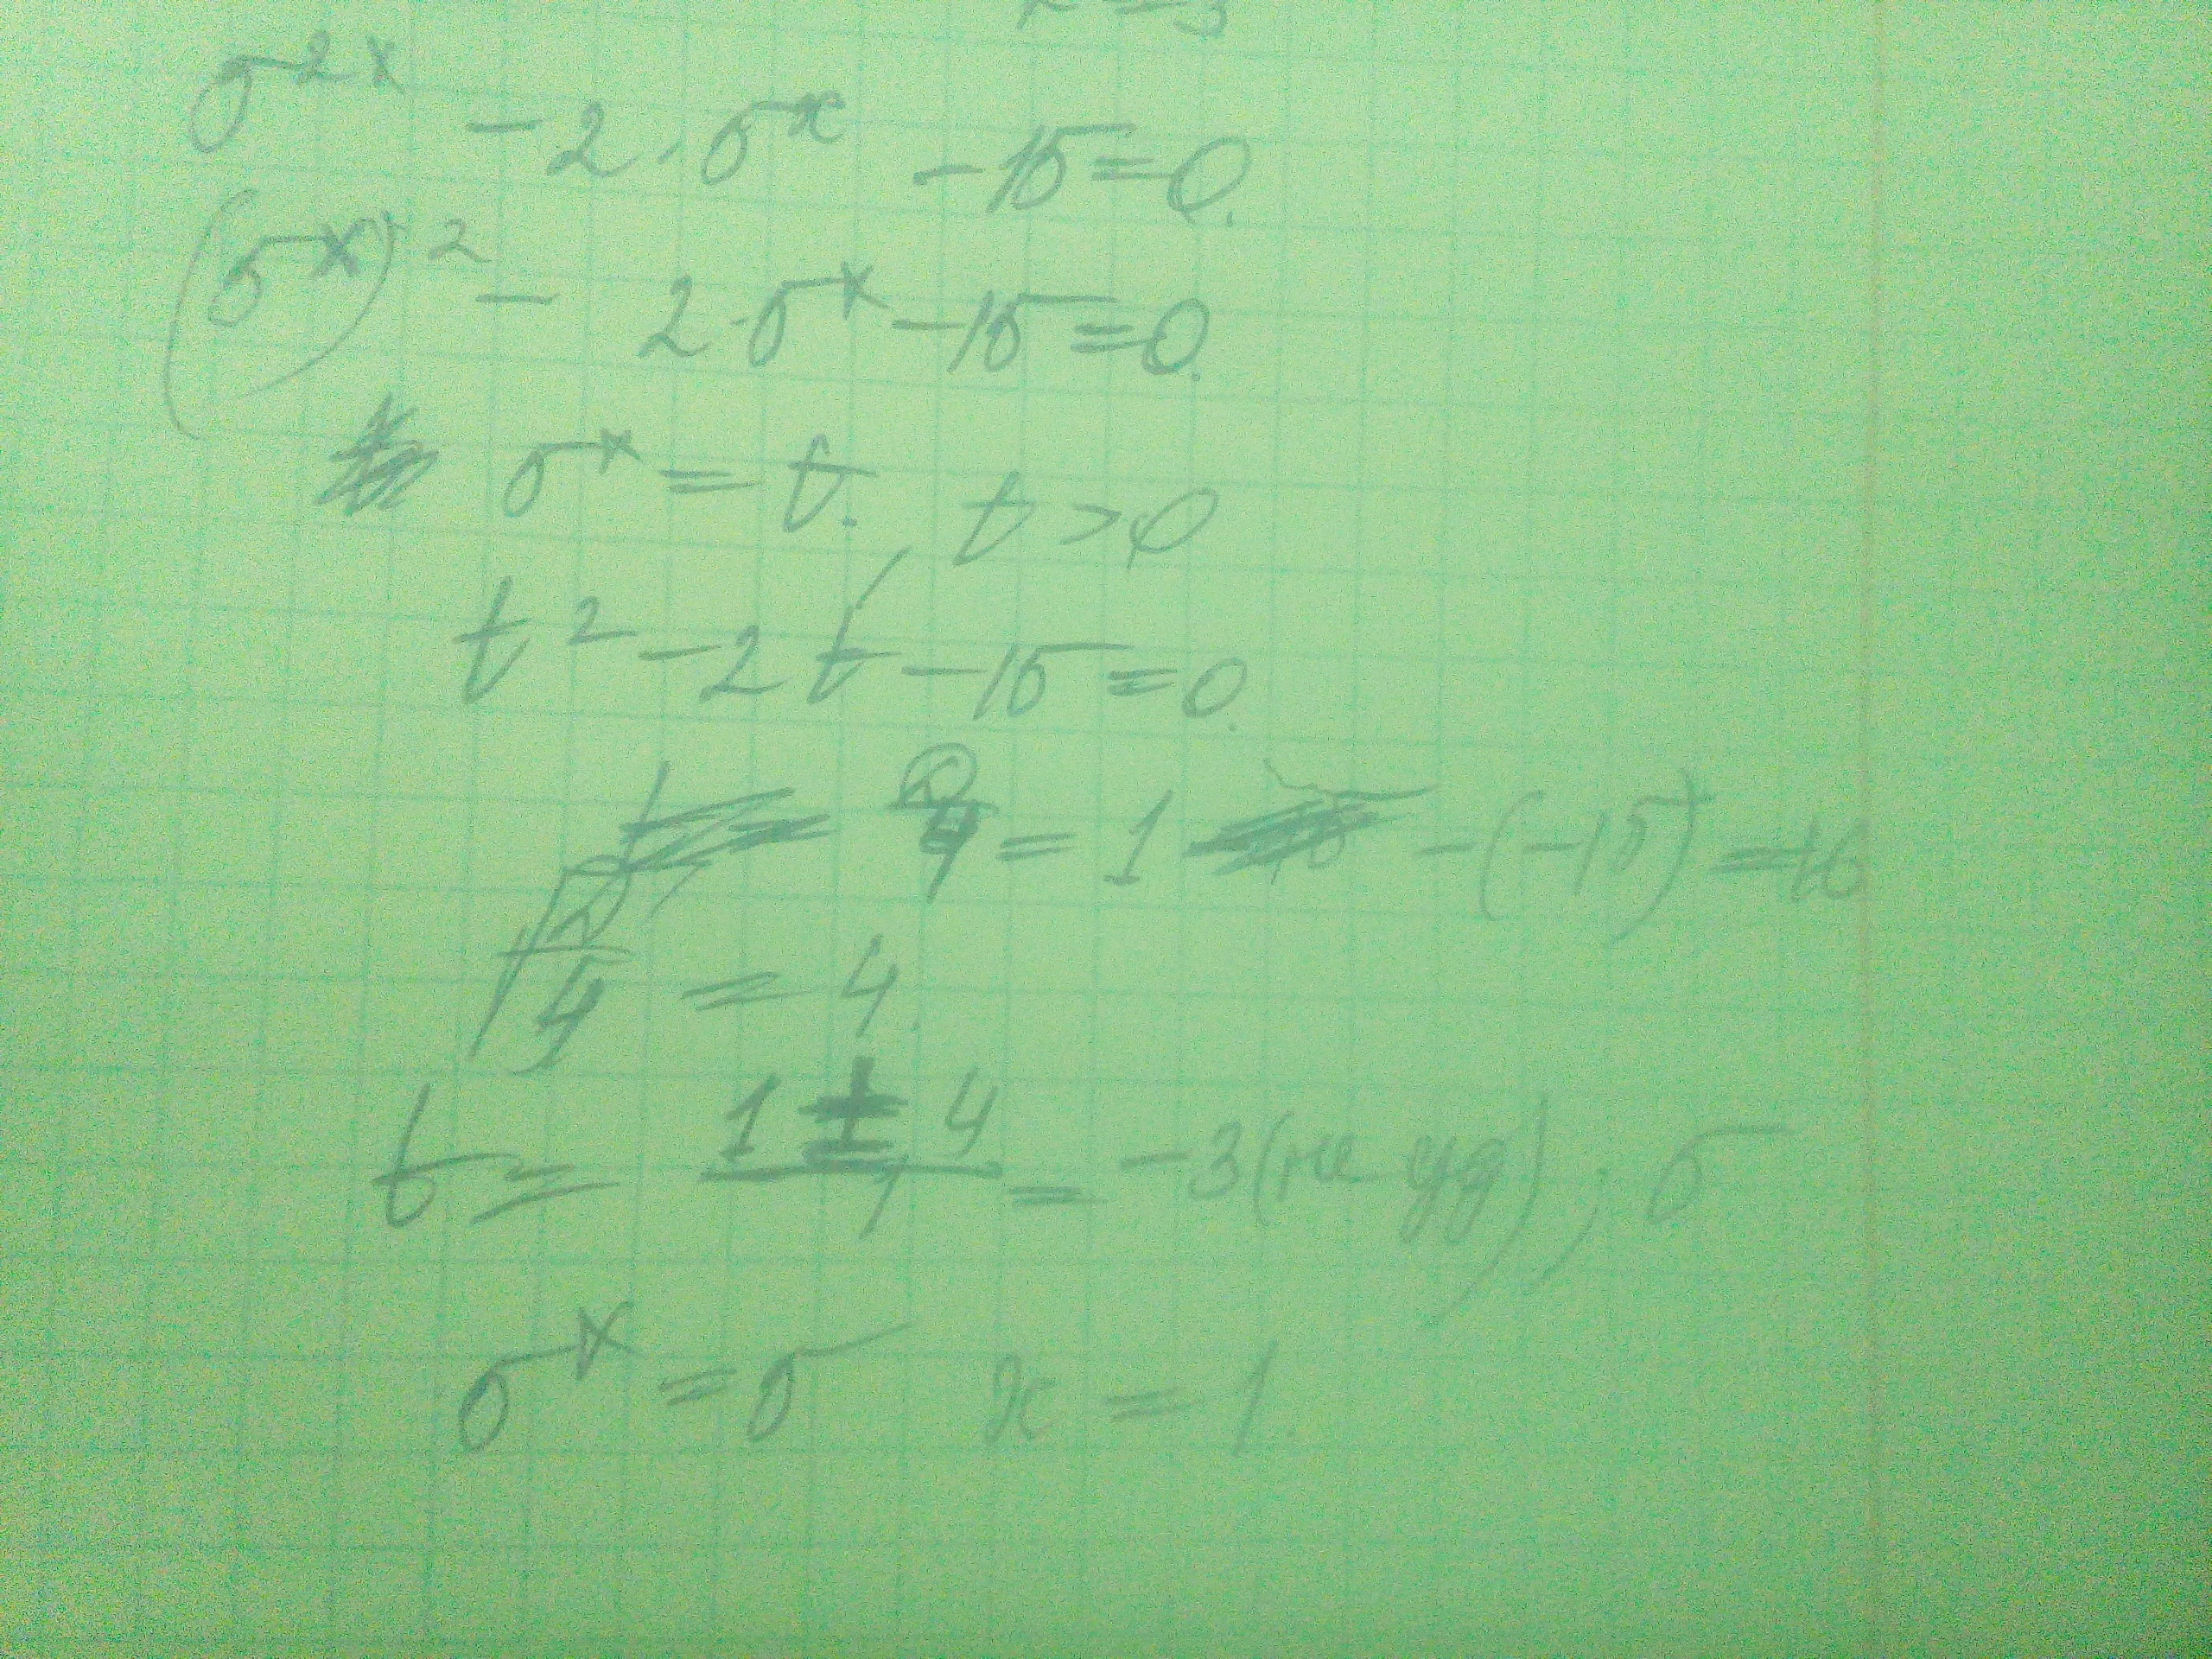 5^{2x} - 2 · 5^x - 15 = 0.
(5^x)^2 - 2 · 5^x - 15 = 0.
5^x = t. , t > 0
t^2 - 2t - 15 = 0.
D/4 = 1 - (-15) = 16
√(D/4) = 4.
t = (1 ± 4)/1 = -3 (не уд) ; 5
5^x = 5 x = 1.